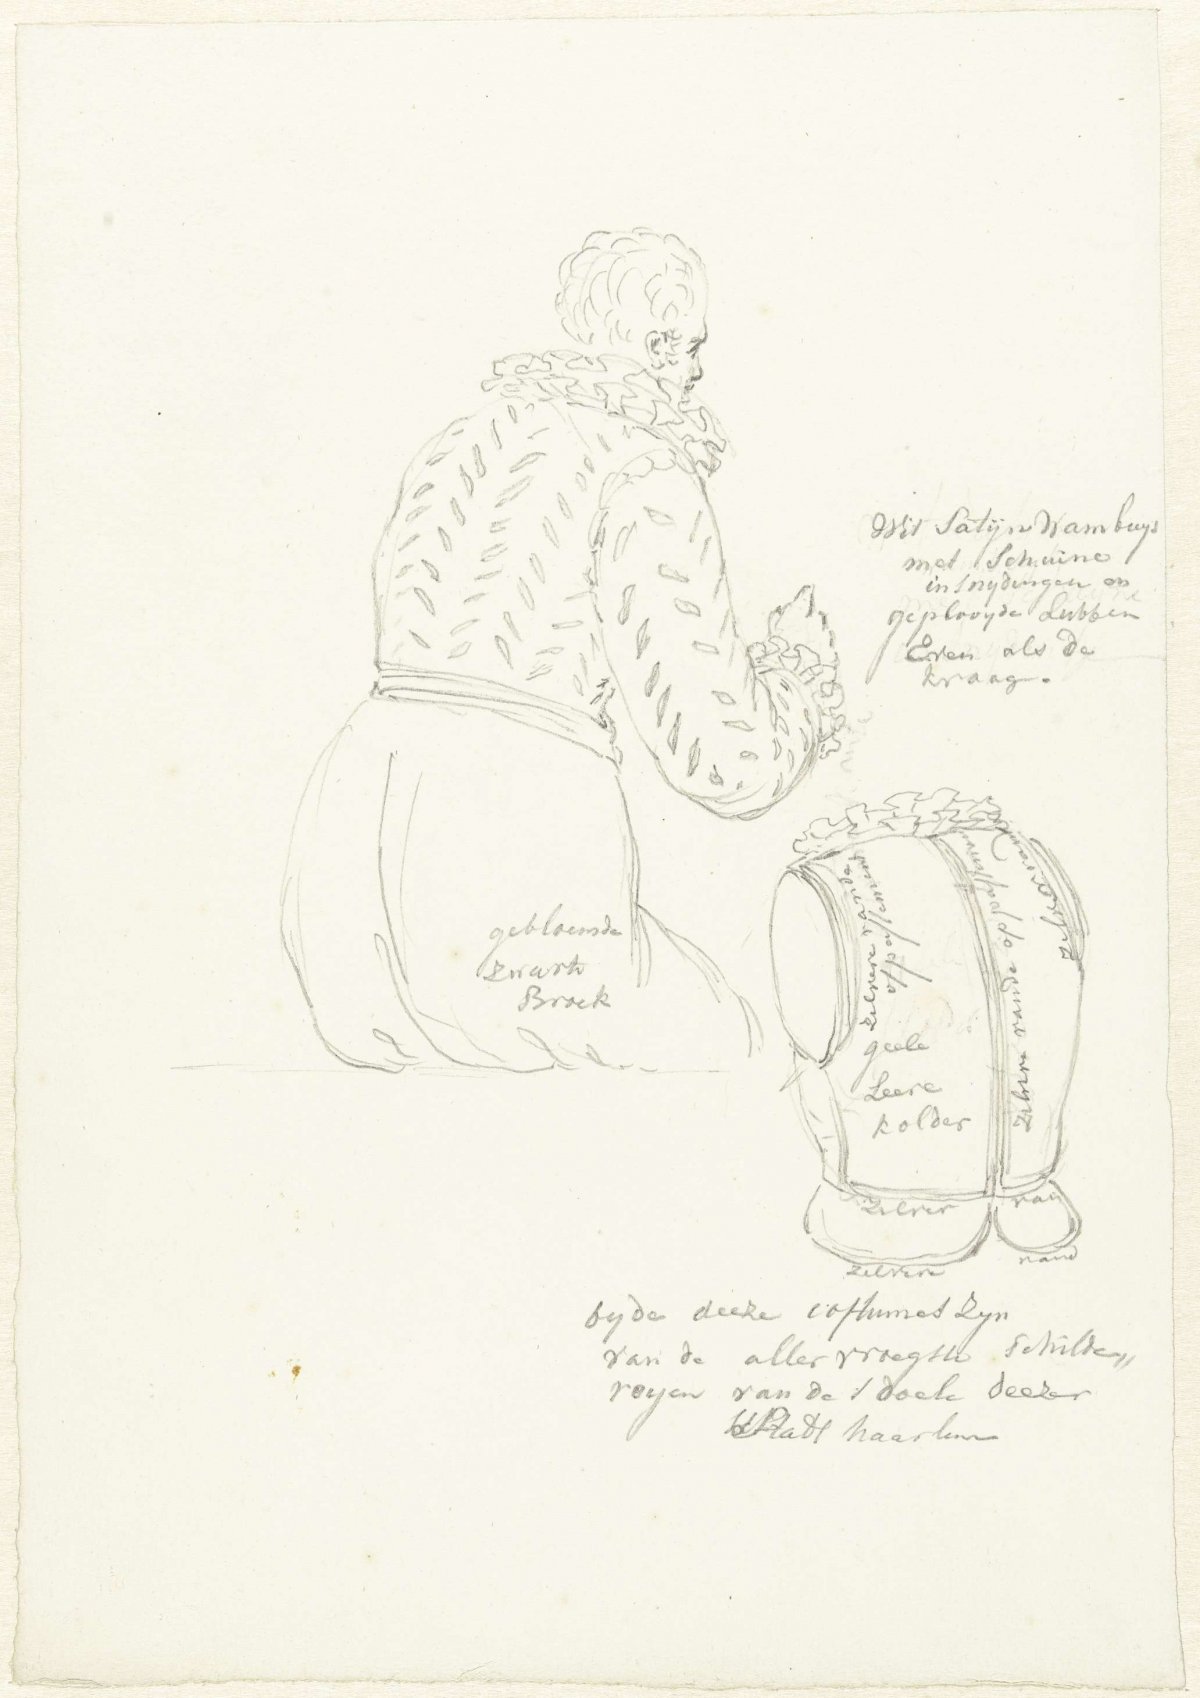 Wit Satijn Wambuys
met Schuine
insnydingen en
geplooyde Lubben
Even als de
kraag.
gebloemde
zwarte
Broek
zilvere rande
of passement
zilvere rande of passement
zilver rand
geele
Leere
kolder
zilver rand
zilvere rand
byde deeze costumes zyn
van de aller vroegste schilde„
royen van de doele deezer
Stadt haarlem